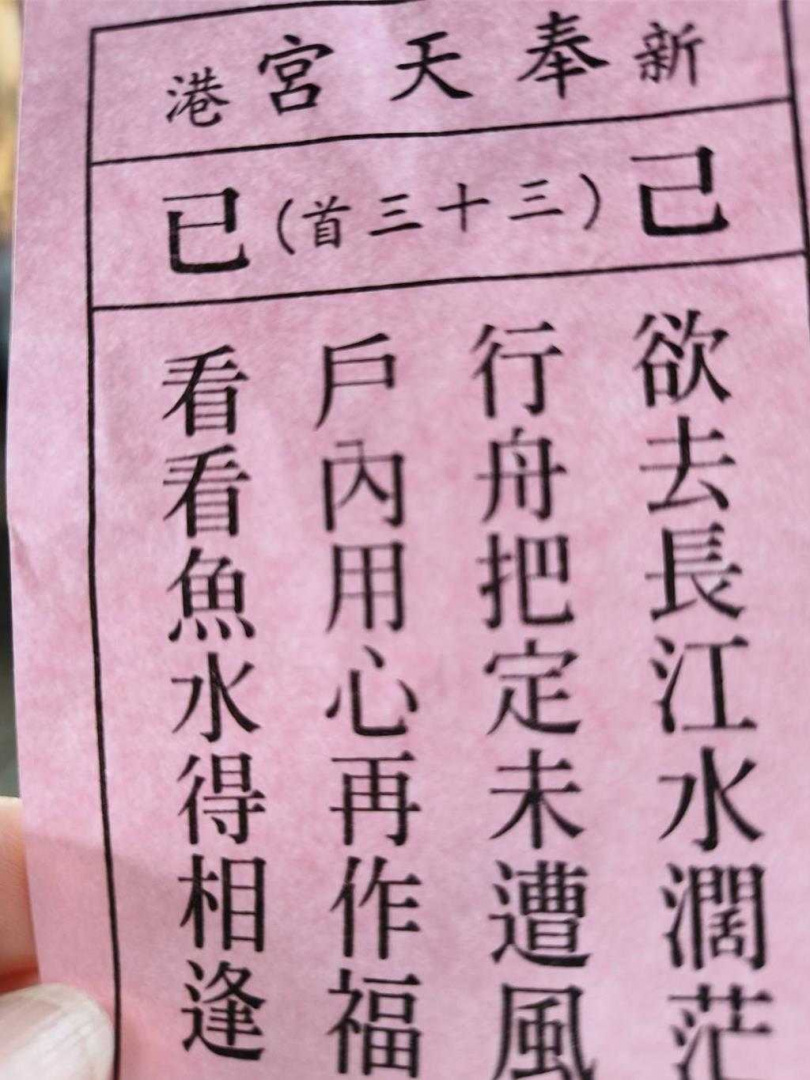 新奉天宮港
己(三十三首)已
欲去長江水濶茫
行舟把定未遭風
戶內用心再作福
看看魚水得相逢